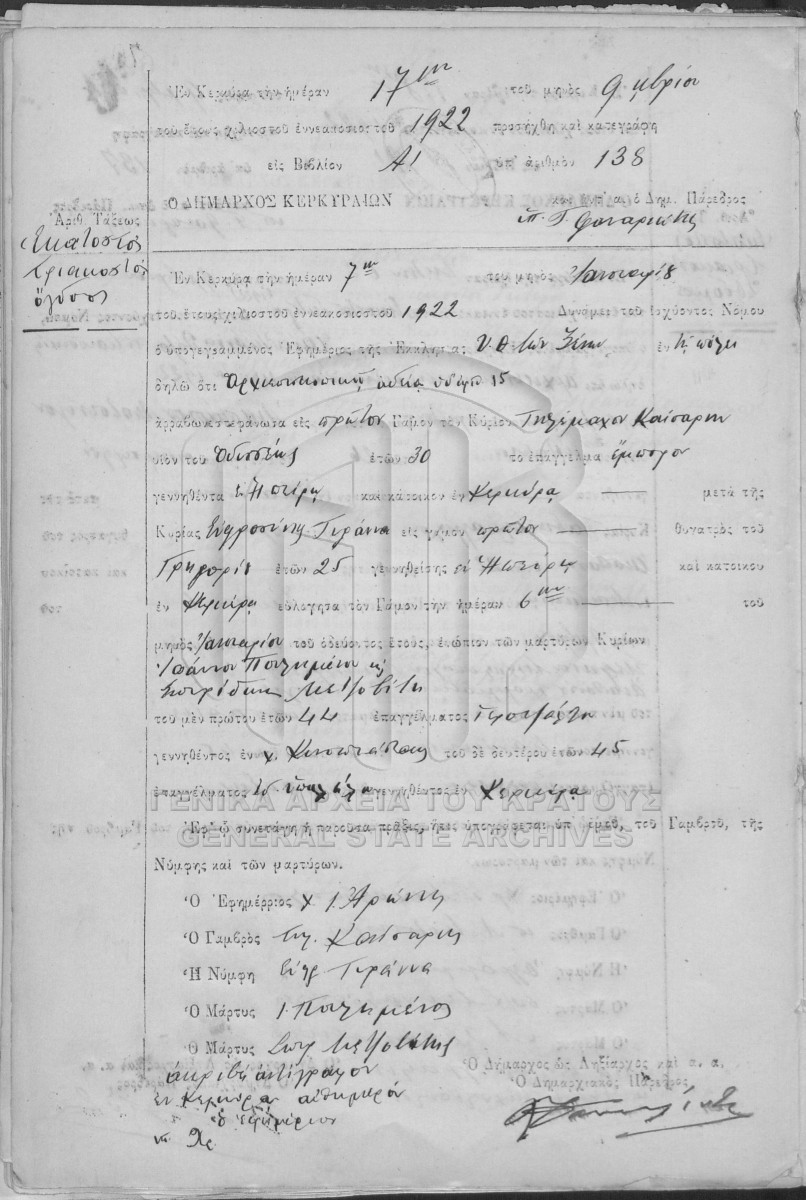 Ἐν Κερκύρᾳ τὴν ἡμέραν 17ην τοῦ μηνὸς 9μβρίου
τοῦ ἔτους χιλιοστοῦ ἐννεακοσιοστοῦ 1922 προσήχθη καὶ κατεγράφη
εἰς Βιβλίον Α' ὑπ' ἀριθμὸν 138
Ὁ ΔΗΜΑΡΧΟΣ ΚΕΡΚΥΡΑΙΩΝ
Δημ. Πάρεδρος
Ἀριθ. Τάξεως
Ἑκατοστὸς
τριακοστὸς
ὄγδοος
Ἐν Κερκύρᾳ τὴν ἡμέραν 7ην τοῦ μηνὸς Ἰανουαρίου
τοῦ ἔτους χιλιοστοῦ ἐννεακοσιοστοῦ 1922 Δυνάμει τοῦ ἰσχύοντος Νόμου
ὁ ὑπογεγραμμένος Ἐφημέριος τῆς Ἐκκλησίας Υ. Θ. τῶν Ξένων ἐν τῇ πόλει
δηλῶ ὅτι Ἀρχιεπισκοπικῇ ἀδείᾳ ὑπ' ἀρ 15
ἀρραβωνεστεφάνωσα εἰς πρῶτον Γάμον τὸν Κύριον Τηλέμαχον Καίσαρην
υἱὸν τοῦ Ὀδυσσέως ἐτῶν 30 τὸ ἐπάγγελμα ἔμπορον
γεννηθέντα ἐν Ἠπείρῳ καὶ κάτοικον ἐν Κερκύρᾳ μετὰ τῆς
Κυρίας Εὐφροσύνης Τυράννα εἰς γάμον πρῶτον θυγατρὸς τοῦ
Γρηγορίου ἐτῶν 25 γεννηθείσης ἐν Ἠπείρῳ καὶ κατοίκου
ἐν Κερκύρᾳ εὐλόγησα τὸν Γάμον τὴν ἡμέραν 6ην τοῦ
μηνὸς Ἰανουαρίου τοῦ ὁδεύοντος ἔτους, ἐνώπιον τῶν μαρτύρων Κυρίων
Ἰωάννου Πολυμένου κ
Σπυρίδωνος
τοῦ μὲν πρώτου ἐτῶν 44 ἐπαγγέλματος
γεννηθέντος ἐν χ. τοῦ δὲ δευτέρου ἐτῶν 45
ἐπαγγέλματος γεννηθέντος ἐν Κερκύρᾳ
ΓΕΝΙΚΑ ΑΡΧΕΙΑ ΤΟΥ ΚΡΑΤΟΥΣ
GENERAL STATE ARCHIVES
Ἐφ' ᾧ συνετάγη ἡ παροῦσα πρᾶξις, ἥτις ὑπογράφεται ὑπ' ἐμοῦ, τοῦ Γαμβροῦ, τῆς
Νύμφης καὶ τῶν μαρτύρων.
Ὁ Ἐφημέριος Ἰ. Ἀρώνης
Ὁ Γαμβρὸς Τηλ. Καίσαρης
Ἡ Νύμφη Εὐφρ Τυράννα
Ὁ Μάρτυς Ἰ. Πολυμένος
Ὁ Μάρτυς Σπυρ
ἀκριβὲς ἀντίγραφον
Ἐν Κερκύρᾳ αὐθημερόν
ὁ ἐφημέριος
Ὁ Δήμαρχος ὡς Ληξίαρχος καὶ α. α.
Ὁ Δημαρχιακὸς Πάρεδρος